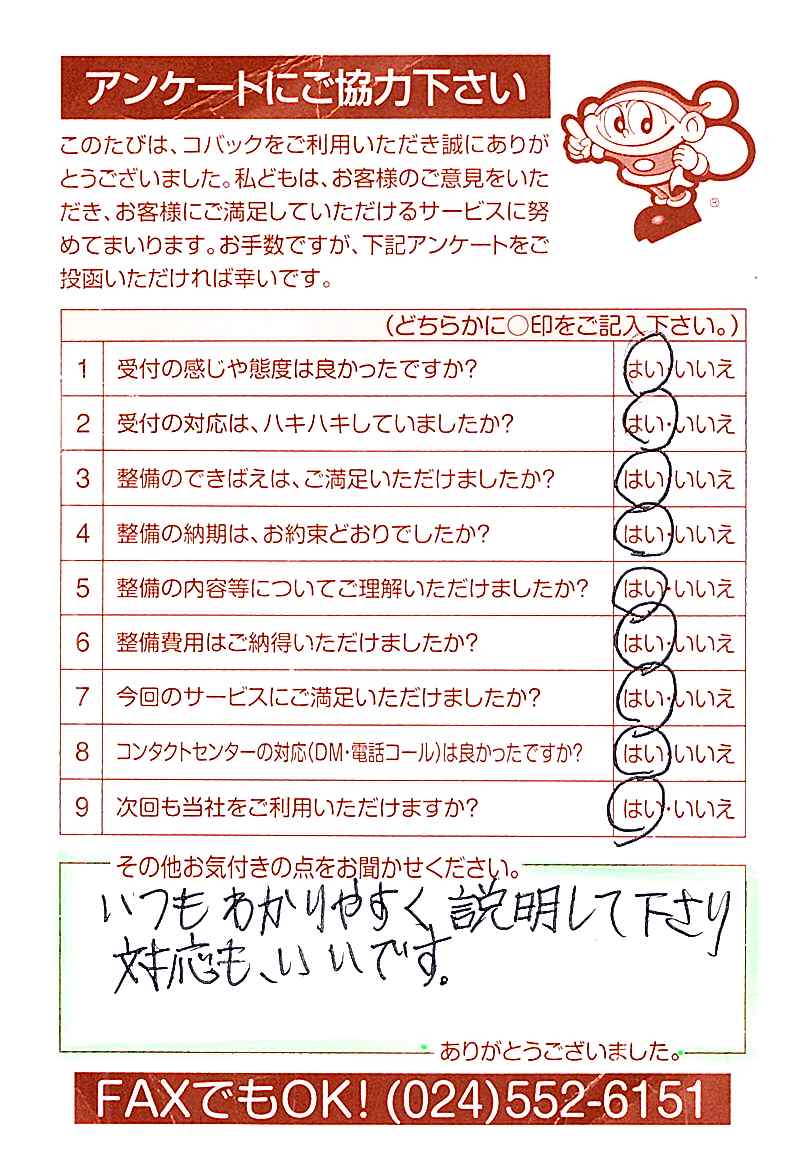 アンケートにご協力下さい
このたびは、コバックをご利用いただき誠にありが
とうございました。私どもは、お客様のご意見をいた
だき、お客様にご満足していただけるサービスに努
めてまいります。お手数ですが、下記アンケートをご
投函いただければ幸いです。
(どちらかに○印をご記入下さい。)
1 受付の感じや態度は良かったですか? はい・いいえ
2 受付の対応は、ハキハキしていましたか? はい・いいえ
3 整備のできばえは、ご満足いただけましたか? はい・いいえ
4 整備の納期は、お約束どおりでしたか? はい・いいえ
5 整備の内容等についてご理解いただけましたか? はい・いいえ
6 整備費用はご納得いただけましたか? はい・いいえ
7 今回のサービスにご満足いただけましたか? はい・いいえ
8 コンタクトセンターの対応(DM・電話コール)は良かったですか? はい・いいえ
9 次回も当社をご利用いただけますか? はい・いいえ
その他お気付きの点をお聞かせください。
いつもわかりやすく説明して下さり
対応も、いいです。
ありがとうございました。
FAXでもOK! (024)552-6151